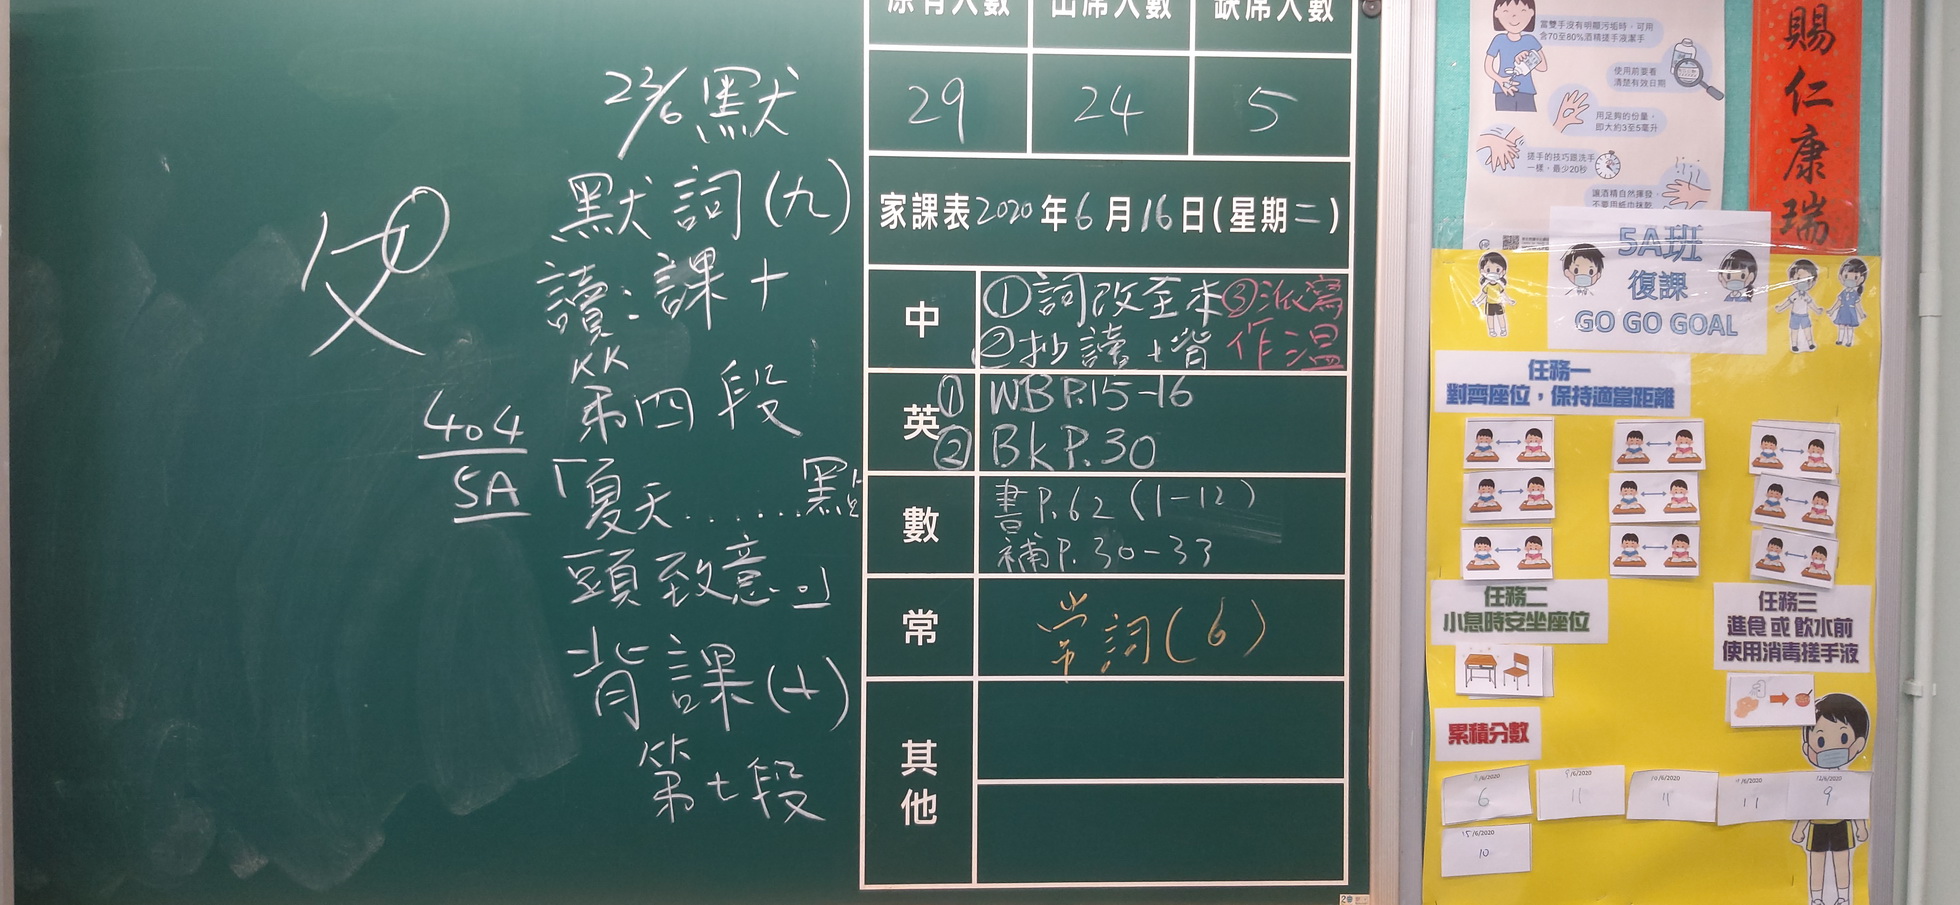 原有人數 出席人數 缺席人數
29 24 5
家課表2020年6月16日(星期二)
中
①詞改至本③派寫
②抄讀+背 作溫
英
① WB P.15-16
② Bk P.30
數
書P.62 (1-12)
補P.30-33
常
常詞(6)
其他
23/6 默
默詞(九)
讀:課十
第四段
「夏天......點
頭致意。」
背課(十)
第七段
404
5A
父
當雙手沒有明顯污垢時,可用
含70至80%酒精搓手液潔手
使用前要看
清楚有效日期
用足夠的份量,
即大約3至5毫升
搓手的技巧跟洗手
一樣,最少20秒
讓酒精自然揮發,
不要用紙巾抹乾
賜仁康瑞
5A班
復課
GO GO GOAL
任務一
對齊座位,保持適當距離
任務二
小息時安坐座位
任務三
進食 或 飲水前
使用消毒搓手液
累積分數
9/6/2020
11
10/6/2020
11
11
12/6/2020
9
6
15/6/2020
10